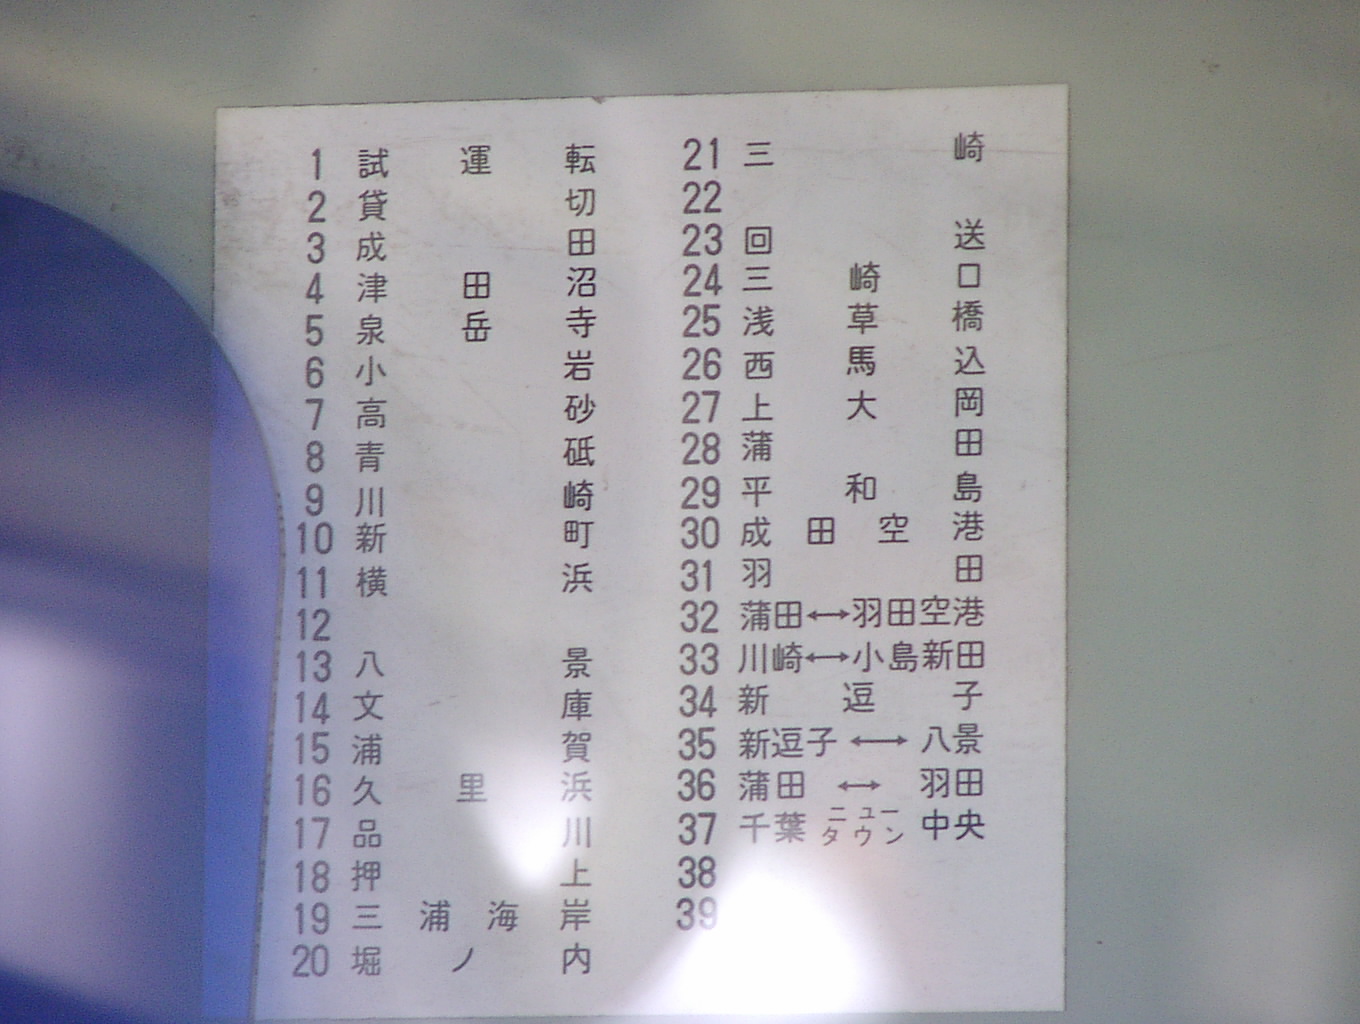 1 試運転
2 貸切
3 成田
4 津田沼
5 泉岳寺
6 小岩
7 高砂
8 青砥
9 川崎
10 新町
11 横浜
12
13 八景
14 文庫
15 浦賀
16 久里浜
17 品川
18 押上
19 三浦海岸
20 堀ノ内
21 三崎
22
23 回送
24 三崎口
25 浅草橋
26 西馬込
27 上大岡
28 蒲田
29 平和島
30 成田空港
31 羽田
32 蒲田↔羽田空港
33 川崎↔小島新田
34 新逗子
35 新逗子↔八景
36 蒲田↔羽田
37 千葉ニュータウン中央
38
39